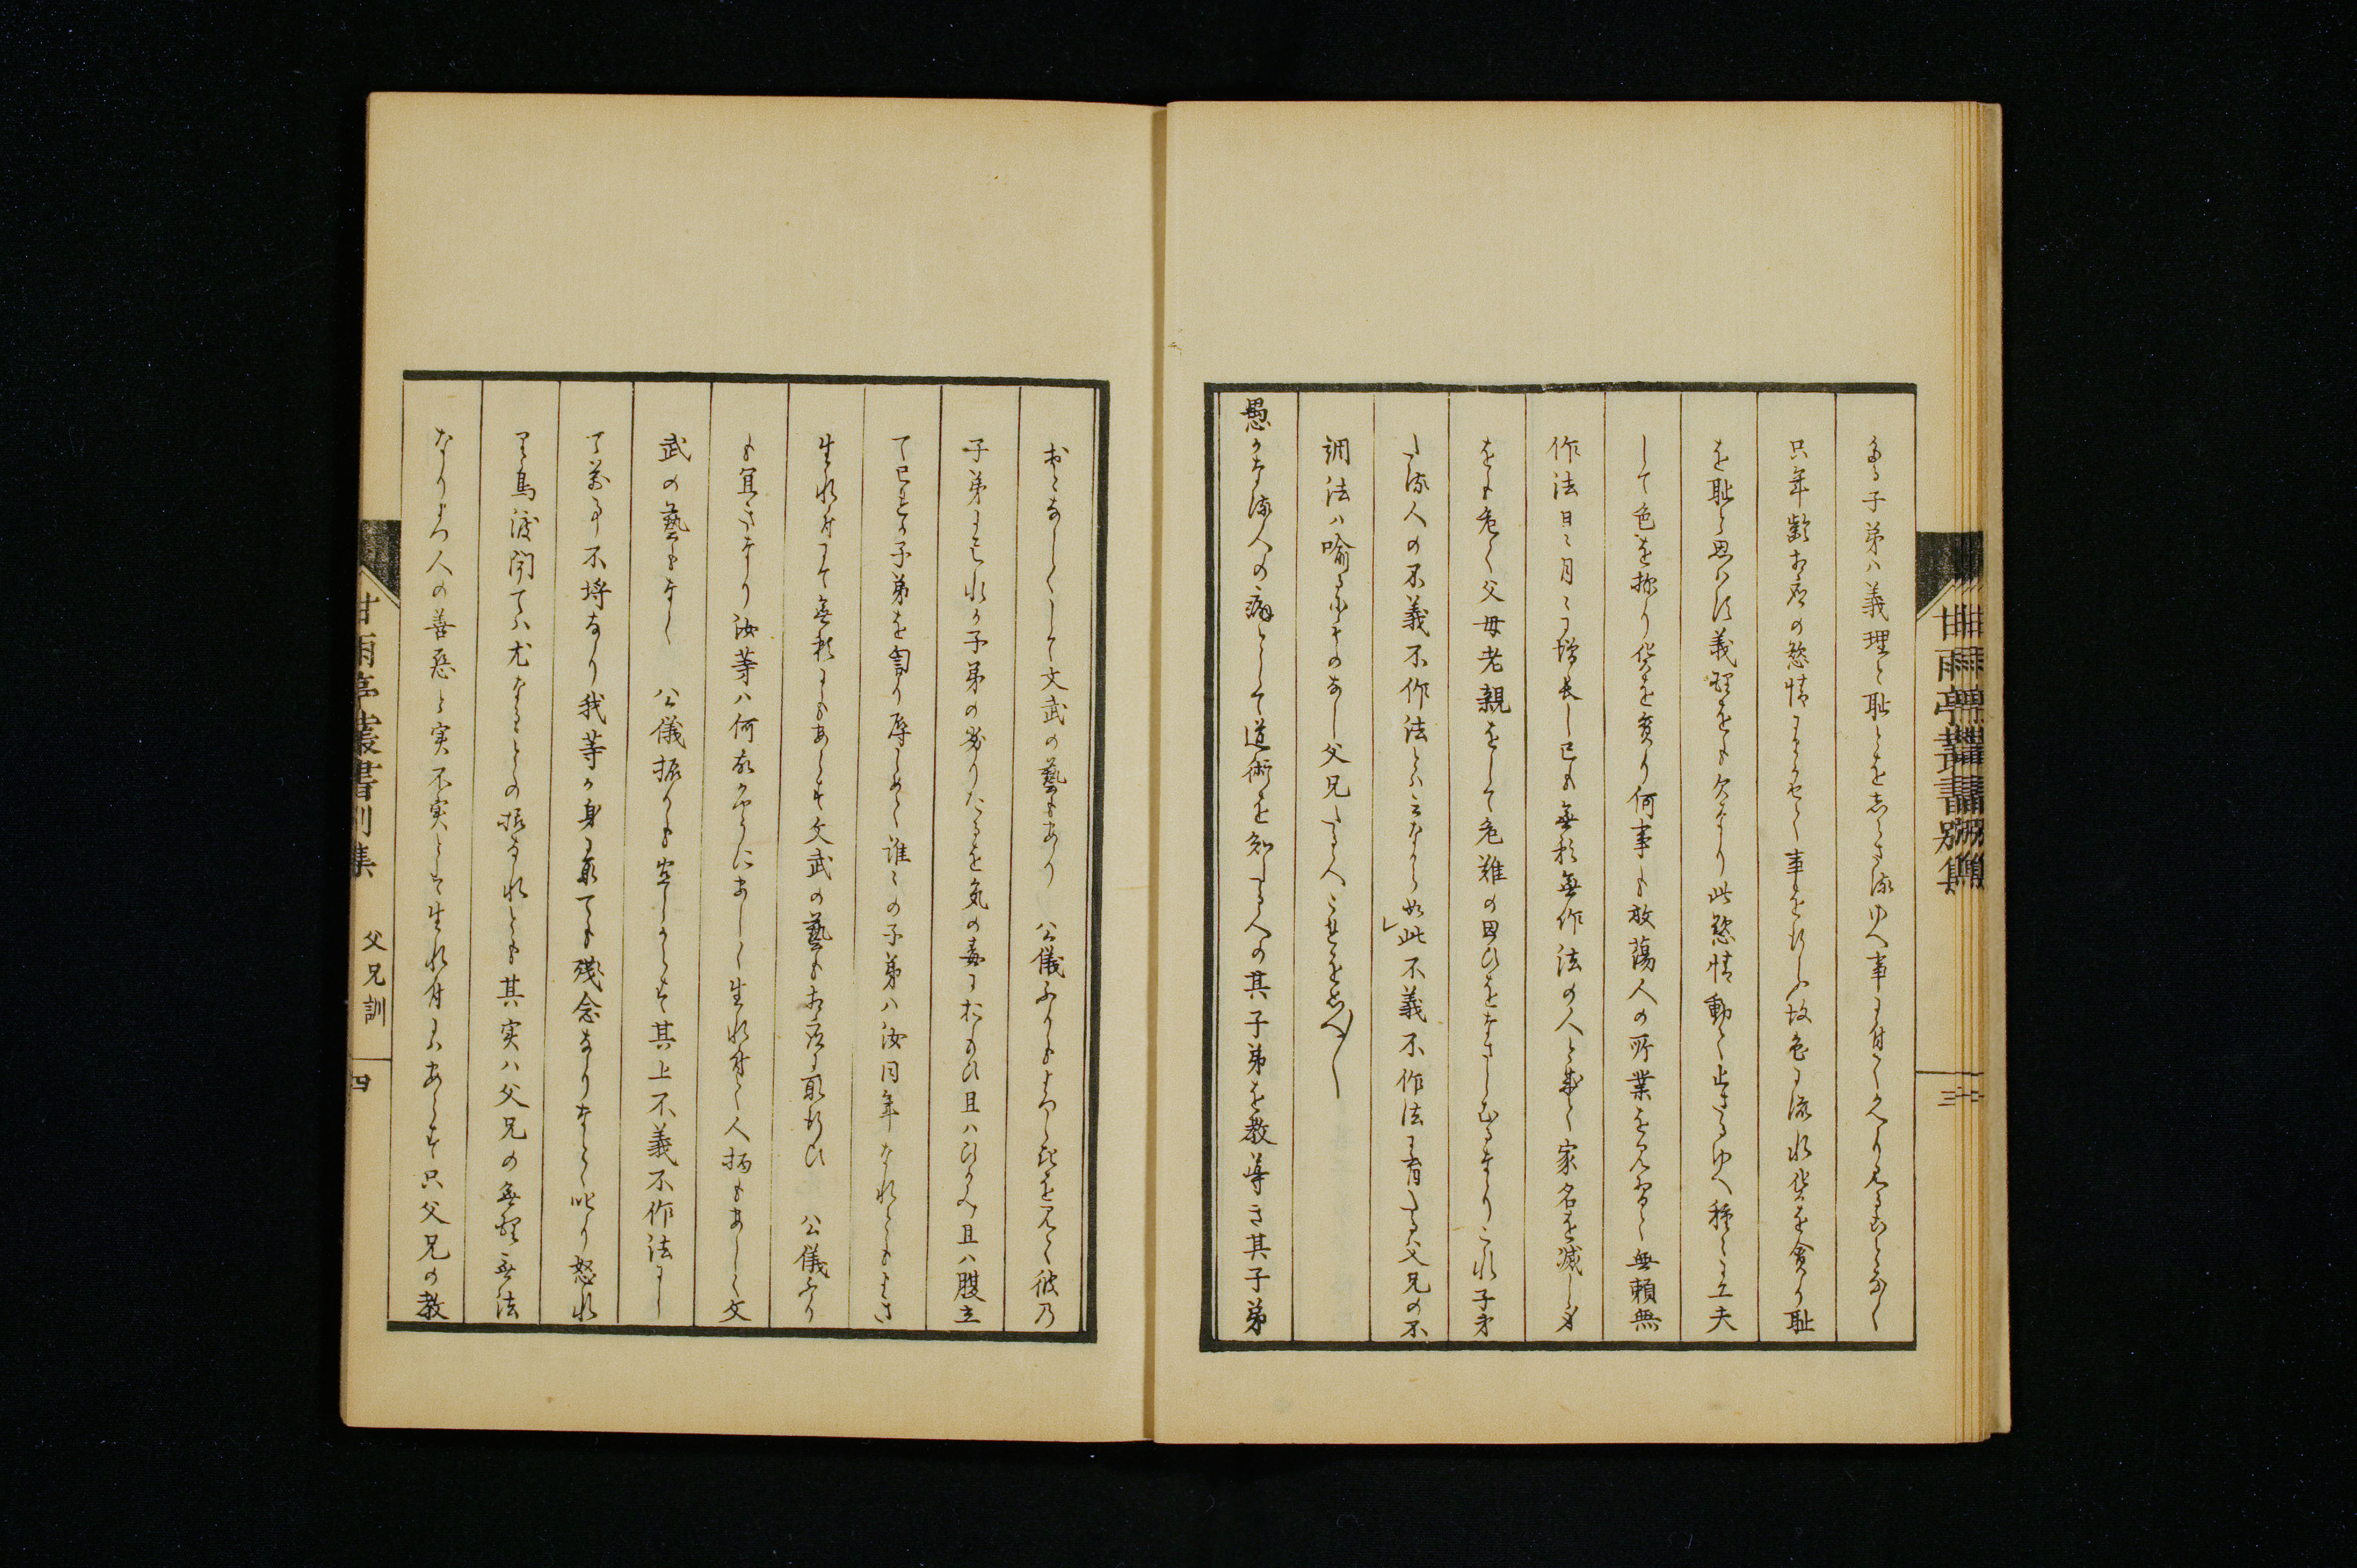 する子弟ハ義理と恥とを志らさる故ゆへ事に付
只年齢相応の慾情にまかせて事を行ふ故色に流れ貨を貪り恥
を恥と思ハす義理をも欠なり此慾情動て止さるゆへ種々工夫
して色を猟り貨を貪り何事も放蕩人の所業を見習て無頼無
作法日々月々に増長し已も無頼無作法の人と成て家名を滅し身
をも危く父母老親をして危難の思ひをなさしむるなりこれ子弟
たる人の不義不作法とハ云なから如此不義不作法に育たる父兄の不
調法ハ喩るにものなし父兄たる人これを思へ
愚かなる人の癖として道術を知たる人の其子弟を教導き其子弟
おとなしくして文武の藝もあり 公儀ふりもよろしきを見て彼乃
子弟にこれか子弟の劣りたるを気の毒におもひ且ハひかみ且ハ腹立
て己か子弟を詈り辱しめて誰々の子弟ハ汝同年なれともよき
生れ付にて無頼にもあらす文武の藝も相応に取行ひ 公儀ふり
も宜きなり汝等ハ何故かやうにあしく生れ付て人柄もあしく文
武の藝もなく 公儀振りも宜しからす其上不義不作法にし
て万事不埒なり我等か身に取ても残念なりなとゝ叱り怒れ
り是ハ一渡聞てハ尤なることの様なれとも其実ハ父兄の無理無法
なりよつ人の善悪と実不実とハ生れ付にハあらす只父兄の教
甘雨亭叢書別集
三
甘雨亭叢書別集 父兄訓 四